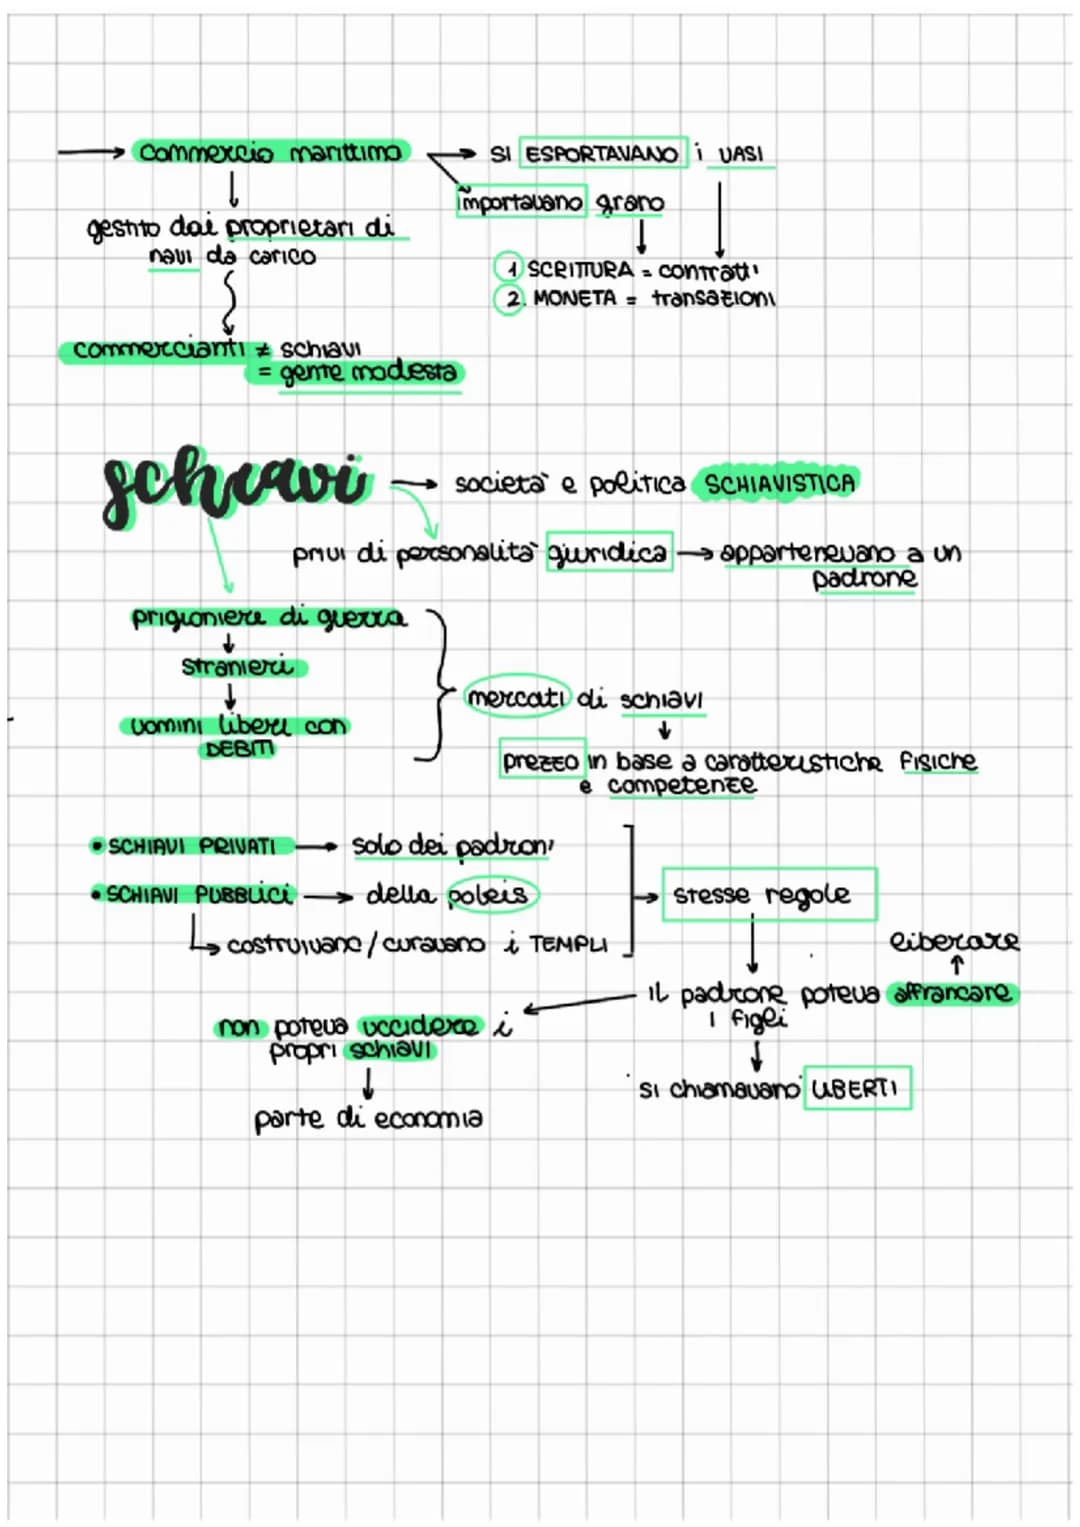 → commercio marittimo → si ESPORTAVANO i VASI
importavano grano
gestito dai proprietari di
navi da carico
1 SCRITTURA = contratti
2. MONETA = transazioni
commercianti ≠ schiavi
= gente modesta
schiavi → società e politica SCHIAVISTICA
privi di personalità giuridica → appartenevano a un
padrone
prigioniere di guerra
stranieri
uomini liberi con
DEBITI
mercati di schiavi
prezzo in base a caratteristiche fisiche
e competenze
• SCHIAVI PRIVATI → solo dei padroni
• SCHIAVI PUBBLICI → della poleis
costruivano/curavano i TEMPLI
stesse regole
liberare
il padrone poteva affrancare
i figli
non poteva uccidere i
propri schiavi
si chiamavano LIBERTI
parte di economia